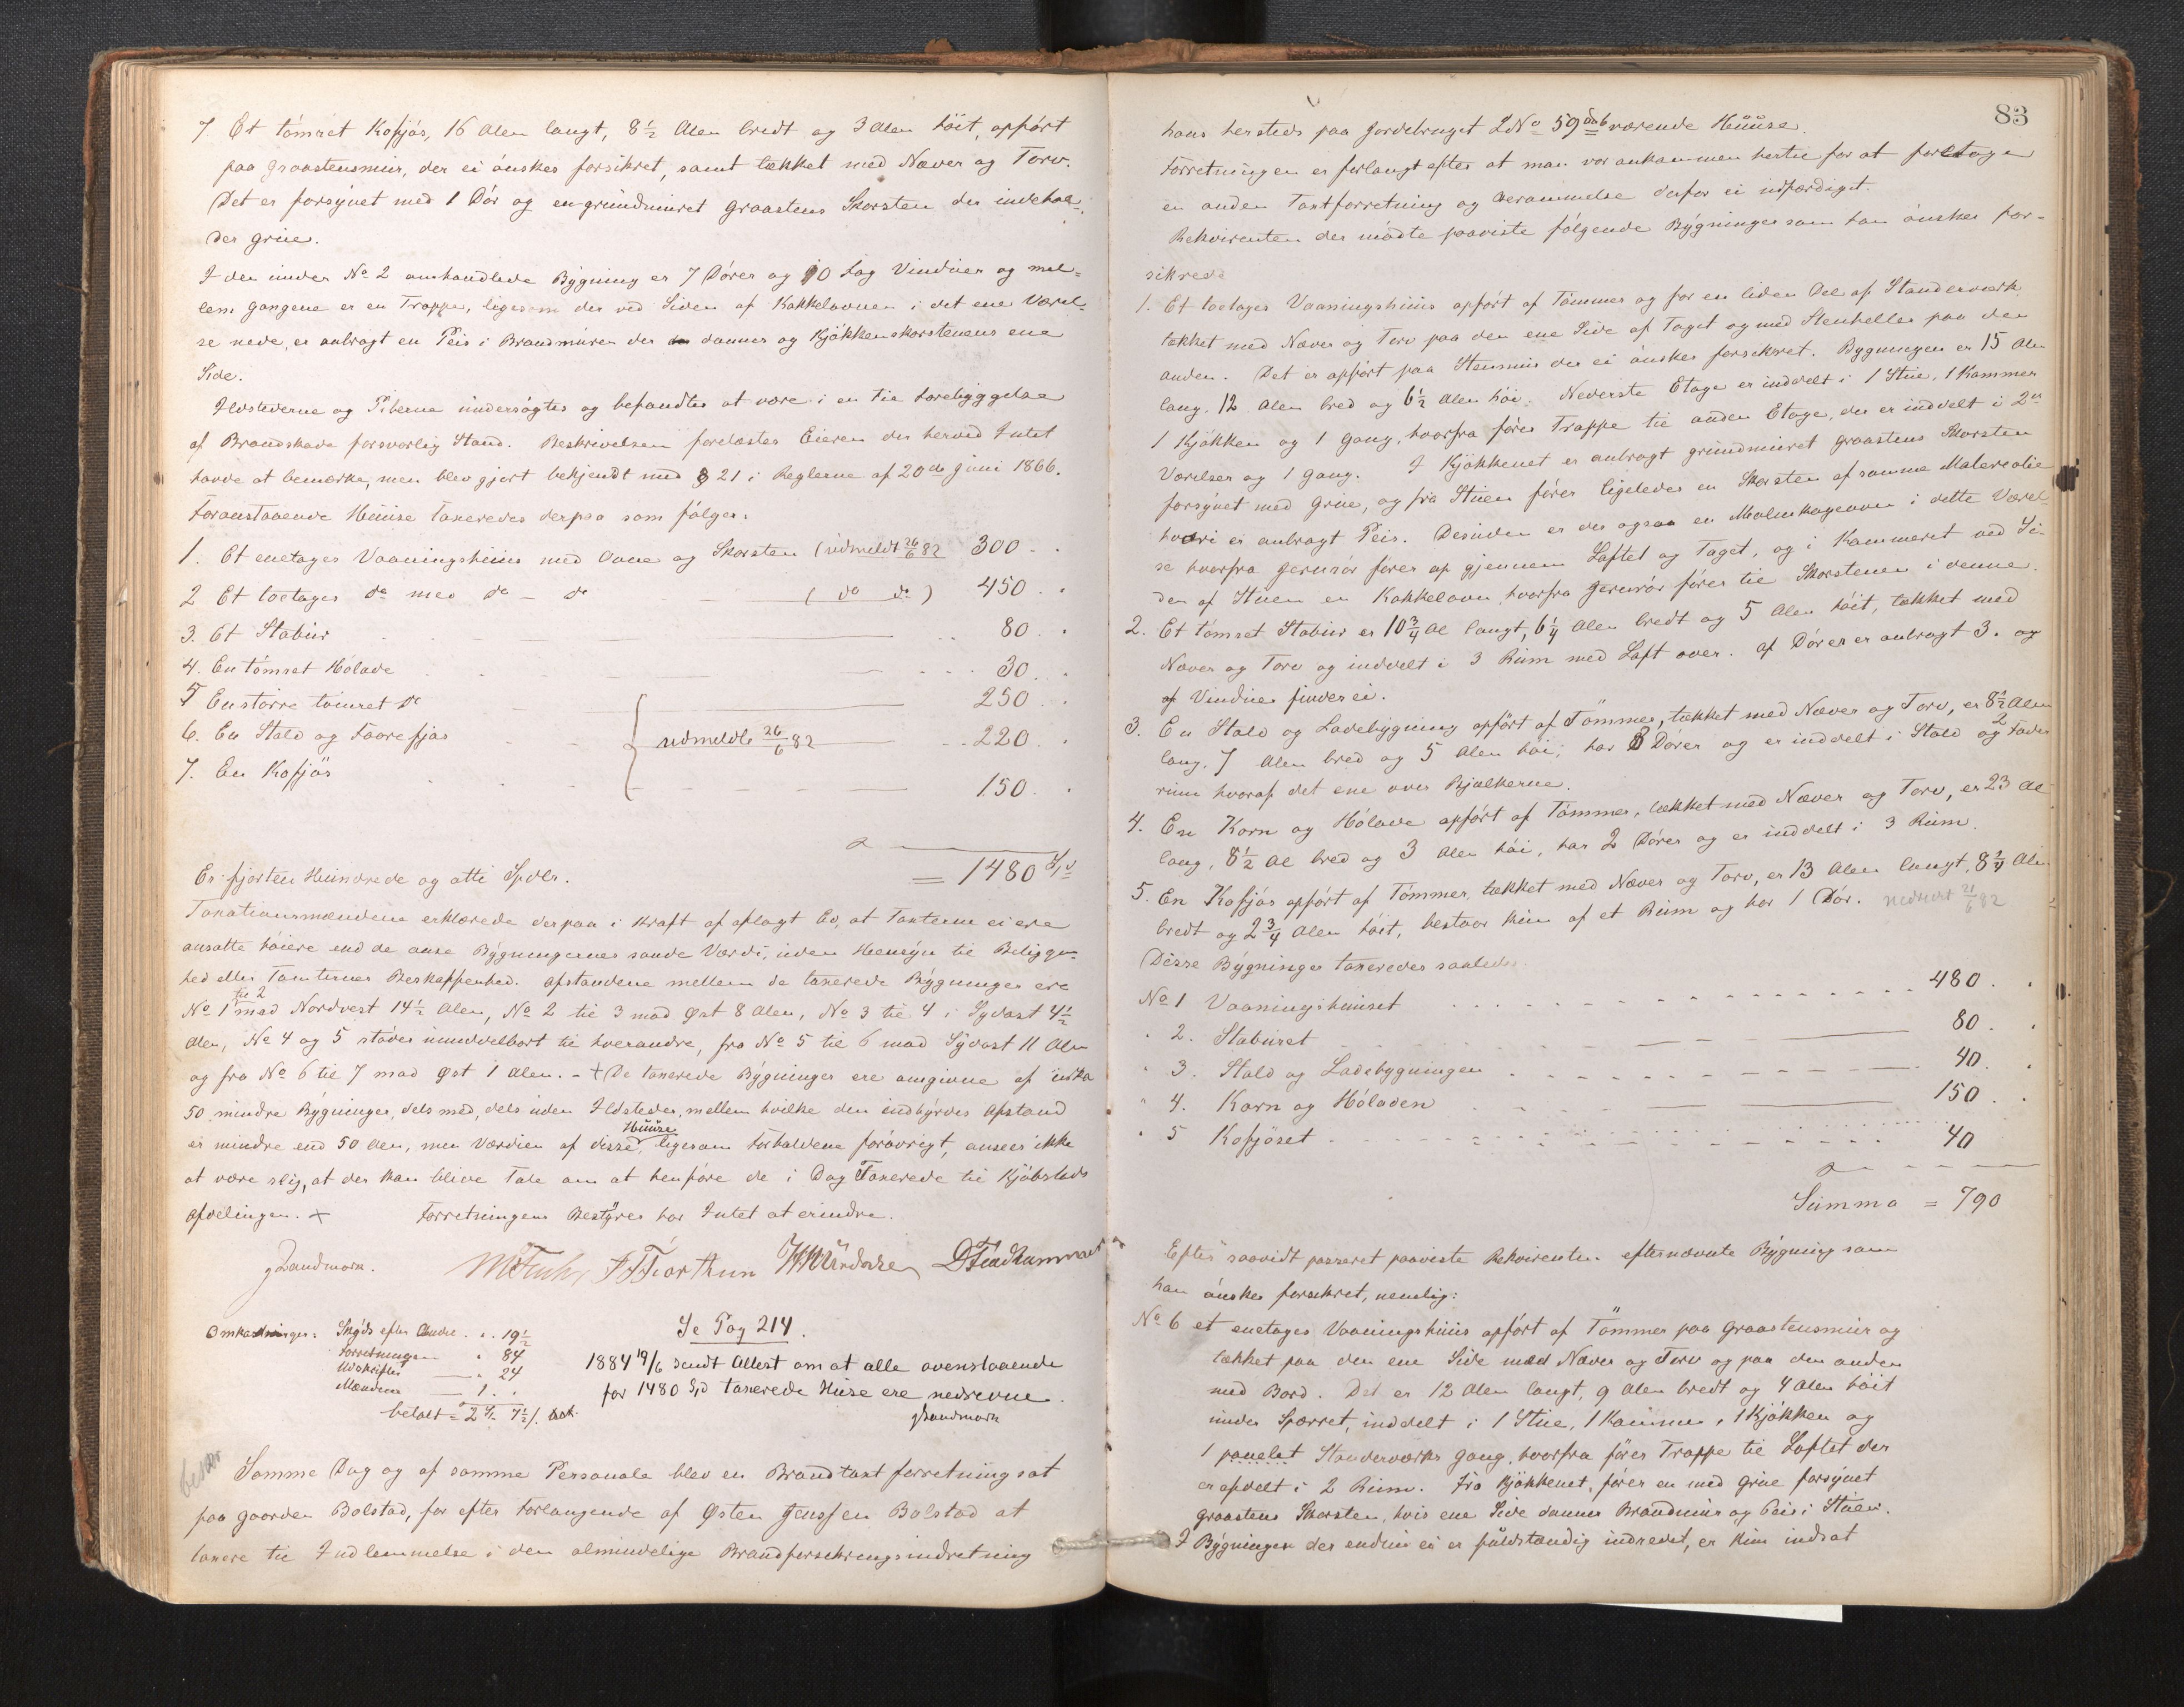 7 Et tömret Kofjös, 16 Alen langt, 8½ Alen bredt og 3 Alen höit, opfört
paa Graastensmur, der ei önskes forsikret, samt tækket med Næver og Torv.
Det er forsynet med 1 Dör og en grundmuret Graastens Skorsten der indehol-
der Grue.
I den under No 2 omhandlede Bygning er 7 Dörer og 10 Fag Vinduer og mel-
lem Gangene er en Trappe, ligesom der ved Siden af Kakkelovnen i det ene Værel-
se nede, er anbragt en Peis i Brandmuren der danner og Kjökkenskorstenens ene
Side.
Ildstederne og Piberne undersögtes og befandtes at være i en til Forebyggelse
af Brandskade forsvarlig Stand. Beskrivelsen forelæstes Eieren der herved Intet
havde at bemærke, men blev gjort bekjendt med § 21 i Reglerne af 20de Juni 1866.
Foranstaaende Huuse taxeredes derpaa som fölger:
1. Et enetages Vaaningshuus med Ovne og Skorsten (udmeldt 26/6 82 300 . .
2 Et toetages do med do - do (do do) 450 . .
3. Et Stabur 80 . .
4. En tömret Hölade 30 . .
5 En större tömret do 250 . .
6. En Stald og Faarefjøs udmeldt 26/6 82 220 . .
7. En Kofjös 150 . .
= 1480 Spd
Er fjorten Hundrede og otti Spdlr.
Taxationsmændene erklærede derpaa i Kraft af aflagt Ed, at Taxterne ei ere
ansatte höiere end de anse Bygningernes sande Værdi, uden Hensyn til Beliggen-
hed eller Tomternes Beskaffenhed. Afstandene mellem de taxerede Bygninger ere
No 1 til 2 mod Nordvest 14½ Alen, No 2 til 3 mod Øst 8 Alen, No 3 til 4 i Sydost 4½
Alen, No 4 og 5 stöder umiddelbart til hverandre, fra No 5 til 6 mod Sydost 11 Alen
og fra No 6 til 7 mod Øst 1 Alen. - + De taxerede Bygninger ere omgivne af cirka
50 mindre Bygninger, dels med, dels uden Ildsteder, mellem hvilke den indbyrdes Afstand
er mindre end 50 Alen, men Værdien af disse Huuse, ligesom Forholdene forövrigt, ansees ikke
at være slig, at der kan blive Tale om at henföre de i Dag Taxerede til Kjöbstads
Afdelingen. + Forretningens Bestyrer har Intet at erindre.
Landmark.
Omkostninger: Skyds efter Andre . . 19½
Forretningen . 84
Udskrifter . 24
Mændene 1 . .
betalt = 2 Sp 7½ s.
Se Pag 214.
1884 19/6 sendt Attest om at alle ovenstaaende
for 1480 Spd taxerede Huse ere nedrevne.
Landmark
Samme Dag og af samme Personale blev en Brandtaxtforretning sat
paa Gaarden Bolstad, for efter Forlangende af Østen Jenssen Bolstad at
taxere til Indlemmelse i den almindelige Brandforsikringsindretning
83
hans hersteds paa Jordebruget LNo 59 b værende Huuse.
Forretningen er forlangt efter at man var ankommen hertil for at foretage
en anden Taxtforretning og Berammelse derfor ei udfærdiget.
Rekvirenten der mödte paaviste fölgende Bygninger som han önsker for-
sikrede
1. Et toetages Vaaningshuus opfört af Tömmer og for en liden Del af Standerværk
tækket med Næver og Torv paa den ene Side af Taget og med Stenheller paa den
anden. Det er opfört paa Stenmur der ei önskes forsikret. Bygningen er 15 Alen
lang, 12 Alen bred og 6½ Alen höi. Nederste Etage er inddelt i 1 Stue, 1 Kammer
1 Kjökken og 1 Gang, hvorfra förer Trappe til anden Etage, der er inddelt i 2
Værelser og 1 Gang. I Kjökkenet er anbragt grundmuret Graastens Skorsten
forsynet med Grue, og fra Stuen förer ligeledes en Skorsten af samme Materiale
hvori er anbragt Peis. Desuden er der ogsaa en Malmkogeovn i dette Værel-
se hvorfra Jernrör förer op gjennem Loftet og Taget, og i Kammeret ved Si-
den af Stuen en Kakkelovn hvorfra Jernrör förer til Skorstenen i denne.
2. Et tömret Stabur er 10¾ Al langt, 6¼ Alen bredt og 5 Alen höit, tækket med
Næver og Torv og inddelt i 3 Rum med Loft over. Af Dörer er anbragt 3. og
af Vinduer findes ei.
3. En Stald og Ladebygning opfört af Tömmer, tækket med Næver og Torv, er 8½ Alen
lang, 7 Alen bred og 5 Alen höi; har 3 Dörer og er inddelt i Stald og 2 Foder
rum hvoraf det ene over Bjelkerne.
4. En Korn og Hölade opfört af Tömmer, tækket med Næver og Torv, er 23 Al
lang, 8½ Al bred og 3 Alen höi, har 2 Dörer og er inddelt i 3 Rum.
5. En Kofjös opfört af Tömmer, tækket med Næver og Torv, er 13 Alen langt, 8¼ Alen
bredt og 2¾ Alen höit, bestaar kun af et Rum og har 1 Dör. 21/6 82
Disse Bygninger taxeredes saaledes
No 1 Vaaningshuuset 480 . .
" 2. Staburet 80 . .
" 3. Stald og Ladebygningen 40 .
" 4. Korn og Höladen 150 . .
" 5 Kofjöset 40
Summa = 790
Efter saavidt passeret paaviste Rekvirenten efternævnte Bygning som
han önsker forsikret, nemlig:
No 6 et enetages Vaaningshuus opfört af Tömmer paa Graastensmur og
tækket paa den ene Side med Næver og Torv og paa den anden
med Bord. Det er 12 Alen langt, 9 Alen bredt og 4 Alen höit
under Sperret, inddelt i 1 Stue, 1 Kammer, 1 Kjökken og
1 panelet Standerværks Gang, hvorfra förer Trappe til Loftet der
er afdelt i 2 Rum. Fra Kjökkenet förer en med Grue forsynet
Graastens Skorsten, hvis ene Side danner Brandmur og Peis i Stuen.
I Bygningen der endnu ei er fuldstændig indredet, er kun indsat